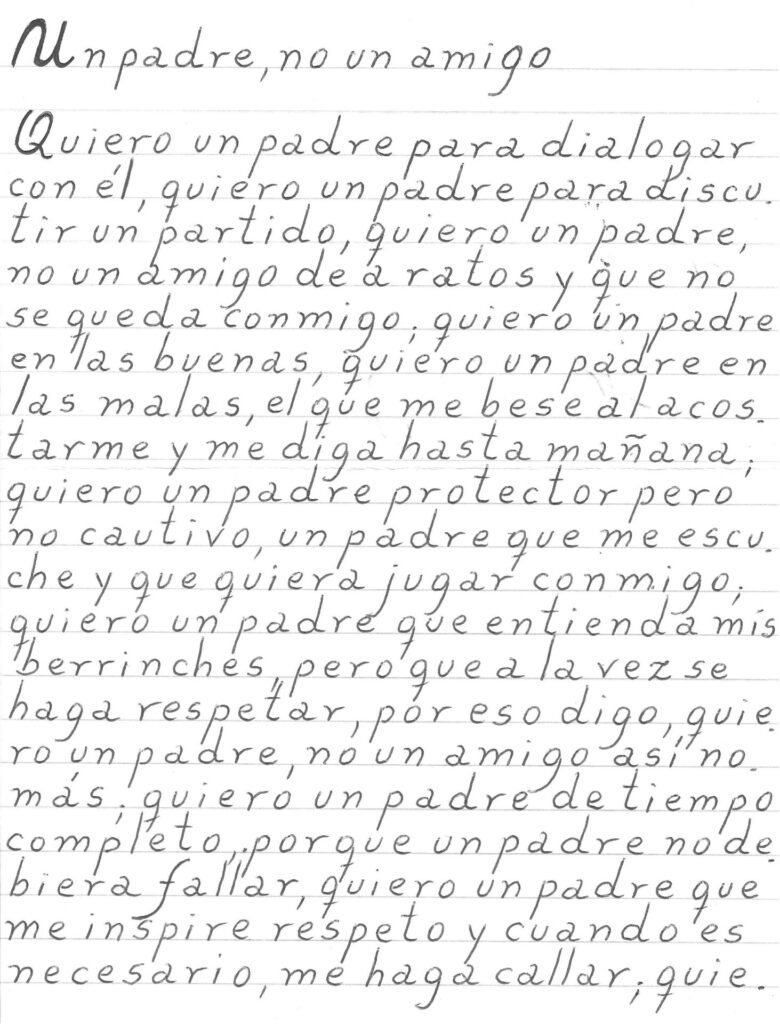 Un padre, no un amigo
Quiero un padre para dialogar
con él, quiero un padre para discu-
tir un partido, quiero un padre,
no un amigo de a ratos y que no
se queda conmigo; quiero un padre
en las buenas, quiero un padre en
las malas, el que me bese al acos-
tarme y me diga hasta mañana;
quiero un padre protector pero
no cautivo, un padre que me escu-
che y que quiera jugar conmigo;
quiero un padre que entienda mis
berrinches, pero que a la vez se
haga respetar, por eso digo, quie-
ro un padre, no un amigo así no-
más; quiero un padre de tiempo
completo, porque un padre no de-
biera fallar, quiero un padre que
me inspire respeto y cuando es
necesario, me haga callar; quie-